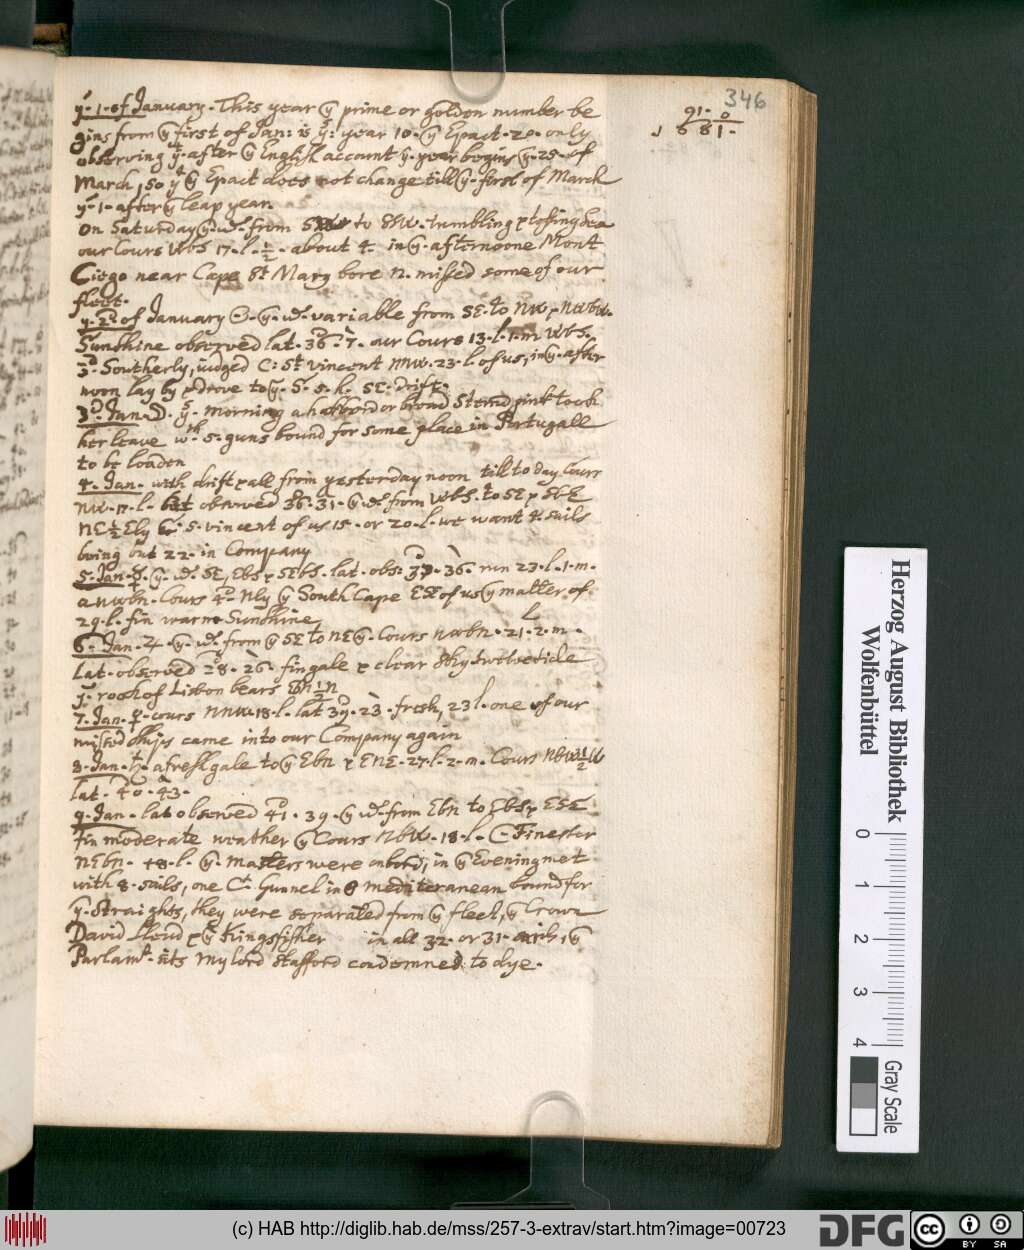 346
91. 0
1681.
yᵉ. 1. of January. This year yᵉ prime or golden number be
gins from yᵉ first of Jan: is yˢ: year 10. yᵉ Epact. 20. only
observing yᵗ. after yᵉ English account yᵉ. year begins yᵉ. 25. of
March, so yᵗ yᵉ Epact does not change till yᵉ. first of March
yᵉ. 1. after yᵉ leap year.
On Saturday yᵉ. wᵈ. from SW to SbW. tumbling & tossing sea
our Cours WbS 17. l. ½. about 4. in yᵉ. afternoone Mont
Ciego near Cape Sᵗ Mary bore N. missed some of our
fleet.
yᵉ. 2. of January ☉. yᵉ. wᵈ. variable from SE. to NW & NWbW.
Sunshine observed lat. 36°. 7'. our Cours 13. l. 1. m WbS.
3°. Southerly, judged C: Sᵗ. Vincent NNW. 23. l. of us, in yᵉ. after
noon lay by & drove to yᵉ. S. 5. h. SE. drift.
3ᵈ. Jan. ☽. yˢ. morning a or broad Sternd pink took
her leave wᵗʰ. 5. guns bound for some place in Portugall
to be loaden
4. Jan. with drift & all from yesterday noon till to day Cours
NW. 17. l. but observed 36°. 31'. yᵉ wᵈ. from WbS. to SE & SbE
NE ½ Ely C: S. Vincent of us 15. or 20. l. we want 4. sails
being but 22. in Company
5. Jan. ☿. yᵉ. wᵈ. SE, EbS & SEbS. lat. obs: 37°. 36'. run 23. l. 1. m.
a NWbN. Cours 4°. Nly yᵉ South Cape ESE of us yᵉ matter of
29. l. fin warm Sunshine
6. Jan. ♃. yᵉ. wᵈ. from yᵉ SE to NE yᵉ. Cours NWbN. 21. l. 2. m.
Lat. observed 38°. 26'. fin gale & clear sky
yᵉ. rock of Lisbon bears EbN ½ N
7. Jan. ♀. cours NNW. 18. l. lat 39°. 23'. fresh, 23 l. one of our
missed ships came into our Company again
8. Jan. ♄. a fresh gale to yᵉ EbN & ENE. 27. l. 2. m. Cours NbW ½ W
lat. 40°. 43'.
9. Jan. lat observed 41°. 39'. yᵉ wᵈ. from EbN to EbS & ESE
fin moderate weather yᵉ Cours NbW. 18. l. C. Finester
NEbN. 18. l. yᵉ. Masters were onbord, in yᵉ Evening met
with 8. sails, one Cᵗ. Gunnel in yᵉ Mediteranean bound for
yᵉ. Straights, they were separated from yᵉ fleet, yᵉ Crown
David Lloud & yᵉ Kingsfisher in all 32. or 31. yᵉ
Parlamᵗ. sits My lord Stafford condemned to dye.
Herzog August Bibliothek
Wolfenbüttel
0 1 2 3 4
Gray Scale
(c) HAB http://diglib.hab.de/mss/257-3-extrav/start.htm?image=00723
DFG
cc BY SA